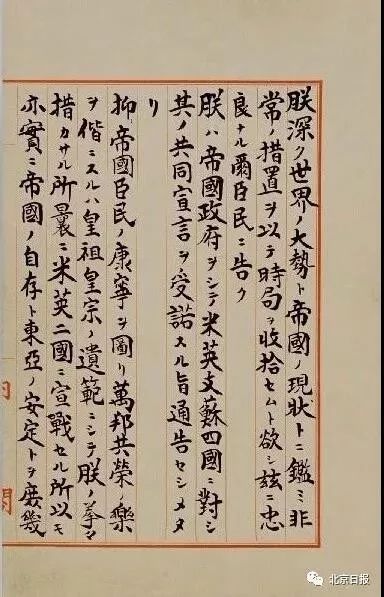 朕深ク世界ノ大勢ト帝國ノ現狀トニ鑑ミ非
常ノ措置ヲ以テ時局ヲ收拾セムト欲シ茲ニ忠
良ナル爾臣民ニ告ク
朕ハ帝國政府ヲシテ米英支蘇四國ニ對シ
其ノ共同宣言ヲ受諾スル旨通告セシメタ
リ
抑帝國臣民ノ康寧ヲ圖リ萬邦共榮ノ樂
ヲ偕ニスルハ皇祖皇宗ノ遺範ニシテ朕ノ拳々
措カサル所曩ニ米英二國ニ宣戰セル所以モ
亦實ニ帝國ノ自存ト東亞ノ安定トヲ庶幾
閣
北京日报